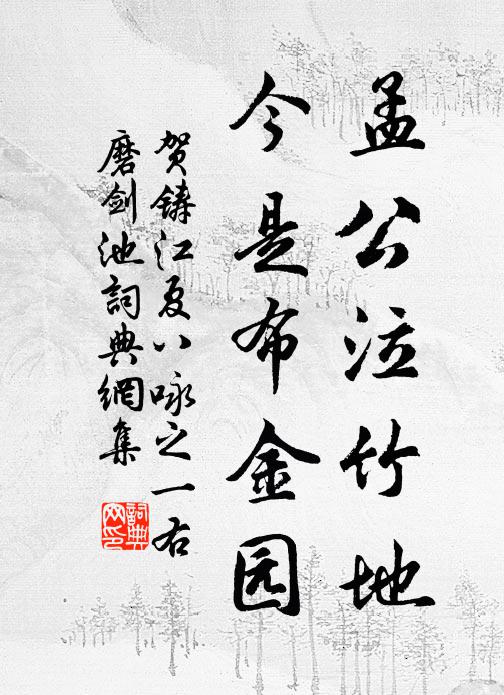 孟公泣竹地
今是布金园
贺铸江夏八咏之一右
磨剑池詞典網集
詞典网印